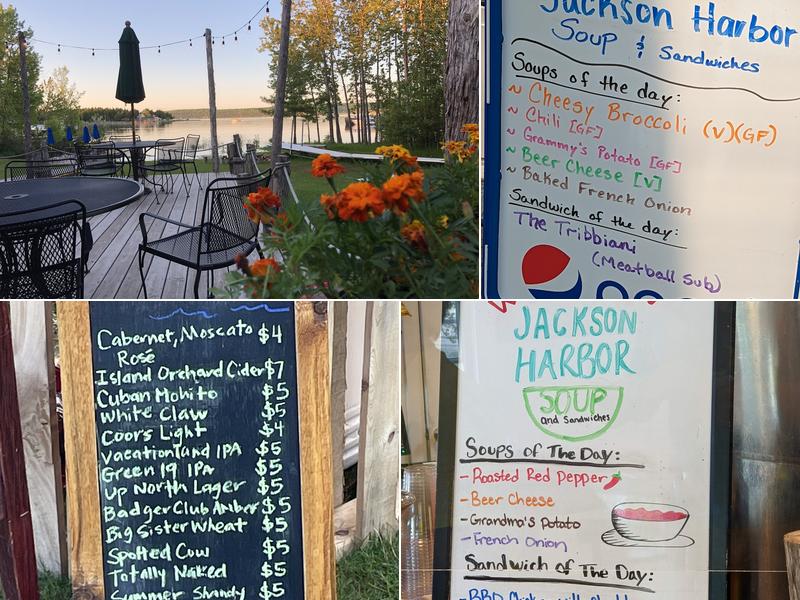 Jackson Harbor
Soup & Sandwiches
Soups of the day:
~ Cheesy Broccoli (V)(GF)
~ Chili [GF]
~ Grammy's Potato [GF]
~ Beer Cheese [V]
~ Baked French Onion
Sandwich of the day:
The Tribbiani
(Meatball Sub)
Cabernet, Moscato $4
Rosé
Island Orchard Cider $7
Cuban Mohito $5
White Claw $5
Coors Light $4
Vacationland IPA $5
Green 19 IPA $5
Up North Lager $5
Badger Club Amber $5
Big Sister Wheat $5
Spotted Cow $5
Totally Naked $5
Summer Shandy $5
JACKSON
HARBOR
SOUP
and Sandwiches
Soups of The Day:
- Roasted Red Pepper
- Beer Cheese
- Grandma's Potato
- French Onion
Sandwich of The Day: